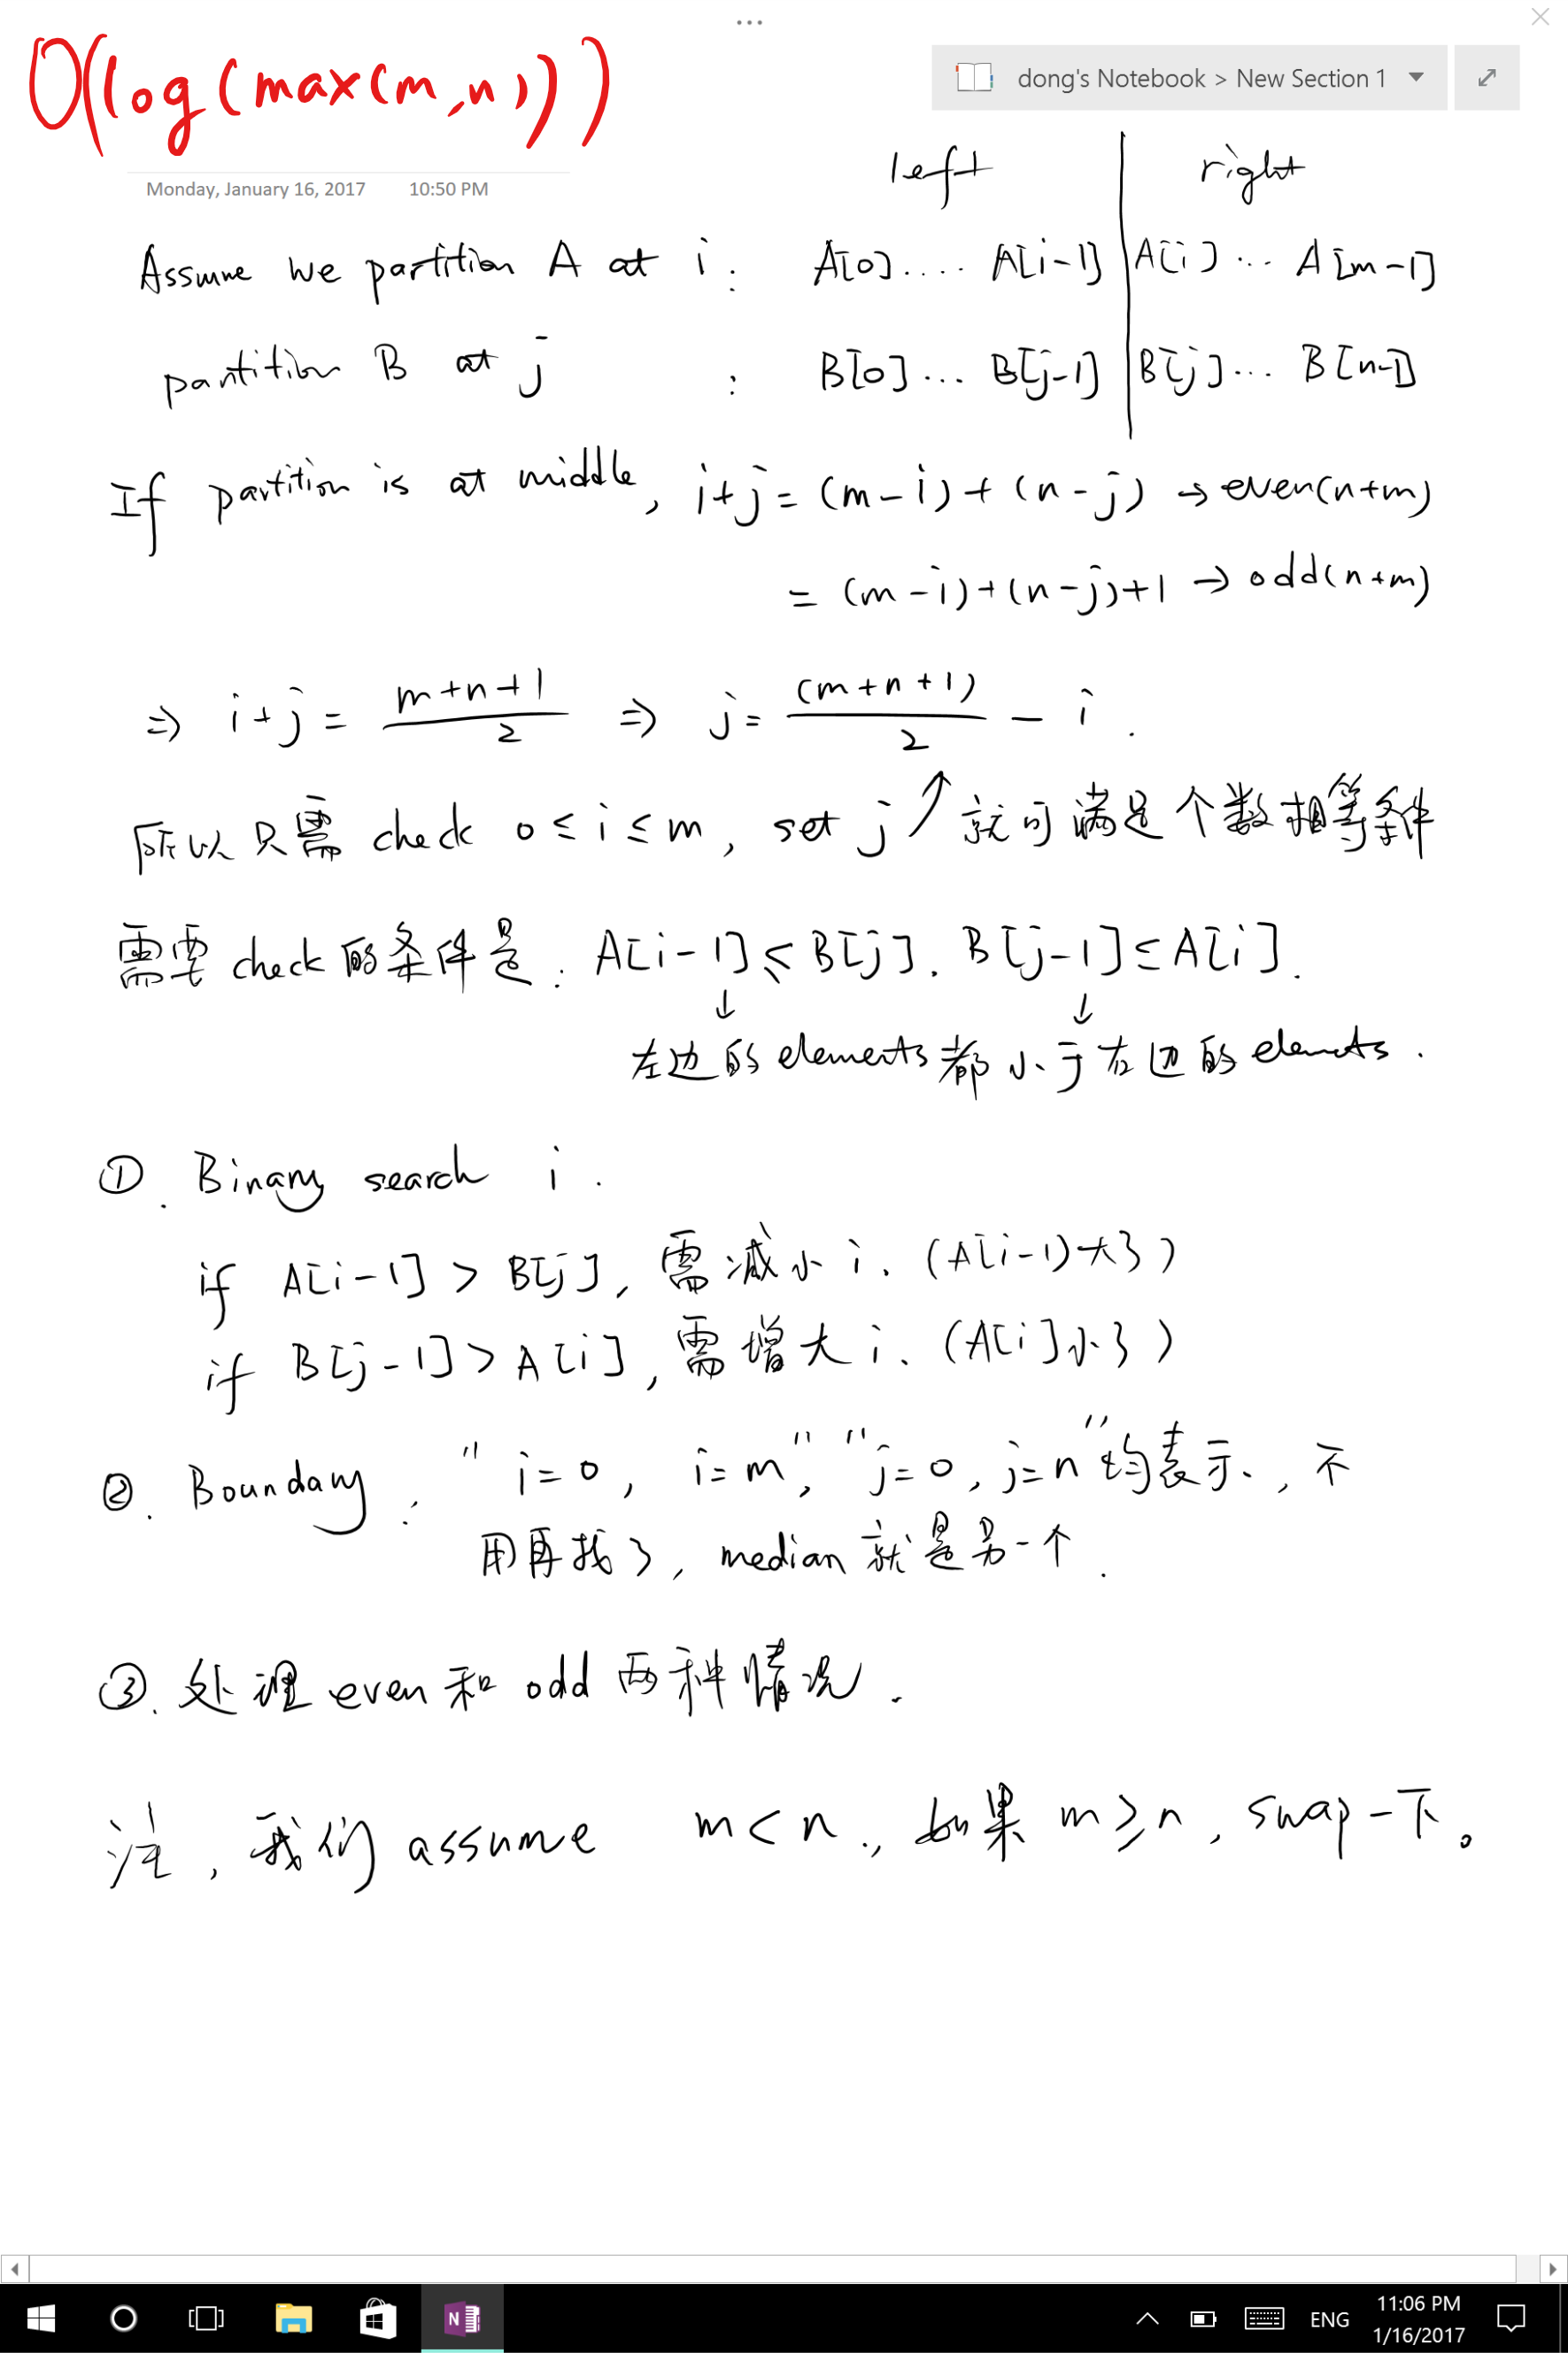 O(log(max(m,n)))
dong's Notebook > New Section 1
Monday, January 16, 2017 10:50 PM
left right
Assume we partition A at i : A[0].... A[i-1] A[i]... A[m-1]
partition B at j : B[0]... B[j-1] B[j]... B[n-1]
If partition is at middle, i+j = (m-i)+(n-j) → even(n+m)
= (m-i)+(n-j)+1 → odd(n+m)
⇒ i+j = (m+n+1)/2 ⇒ j = (m+n+1)/2 - i .
所以只需 check 0 ≤ i ≤ m, set j ↗ 就可满足个数相等条件
需要 check 的条件是: A[i-1] ≤ B[j]. B[j-1] ≤ A[i].
↓ ↓
左边的 elements 都小于右边的 elements.
①. Binary search i .
if A[i-1] > B[j], 需减小 i. (A[i-1]大了)
if B[j-1] > A[i], 需增大 i. (A[i]小了)
②. Boundary: "i=0, i=m", "j=0, j=n" 均表示, 不
用再找了, median 就是另一个.
③. 处理 even 和 odd 两种情况.
注, 我们 assume m < n., 如果 m ≥ n, swap 一下。
ENG
11:06 PM
1/16/2017